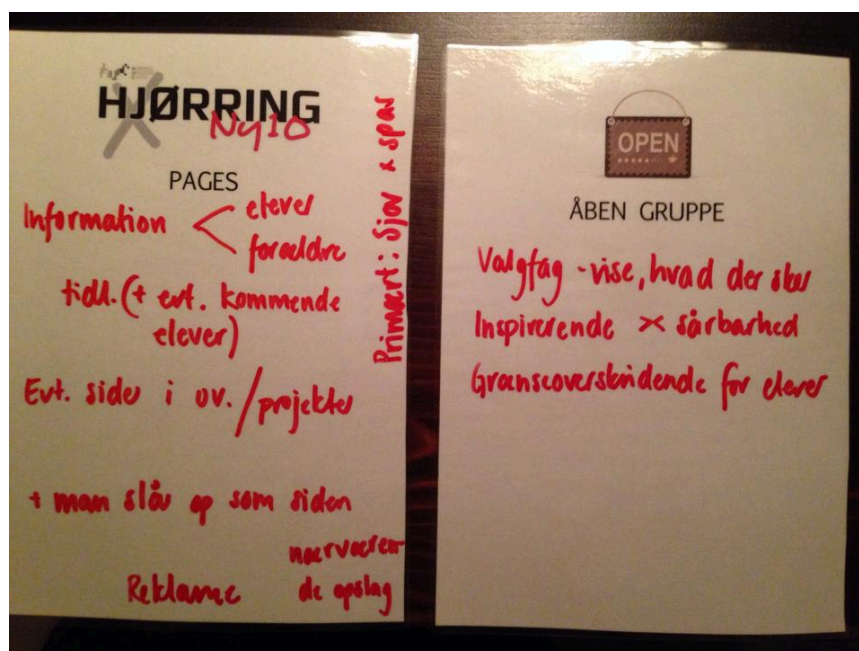 HJØRRING
Ny10
PAGES
Information < elever
forældre
tidl. (+ evt. kommende
elever)
Evt. sider i uv. / projekter
+ man slår op som siden
nærværen-
Reklame de opslag
Primært: Sjov & spas
OPEN
ÅBEN GRUPPE
Valgfag - vise, hvad der sker
Inspirerende × sårbarhed
Grænseoverskridende for elever